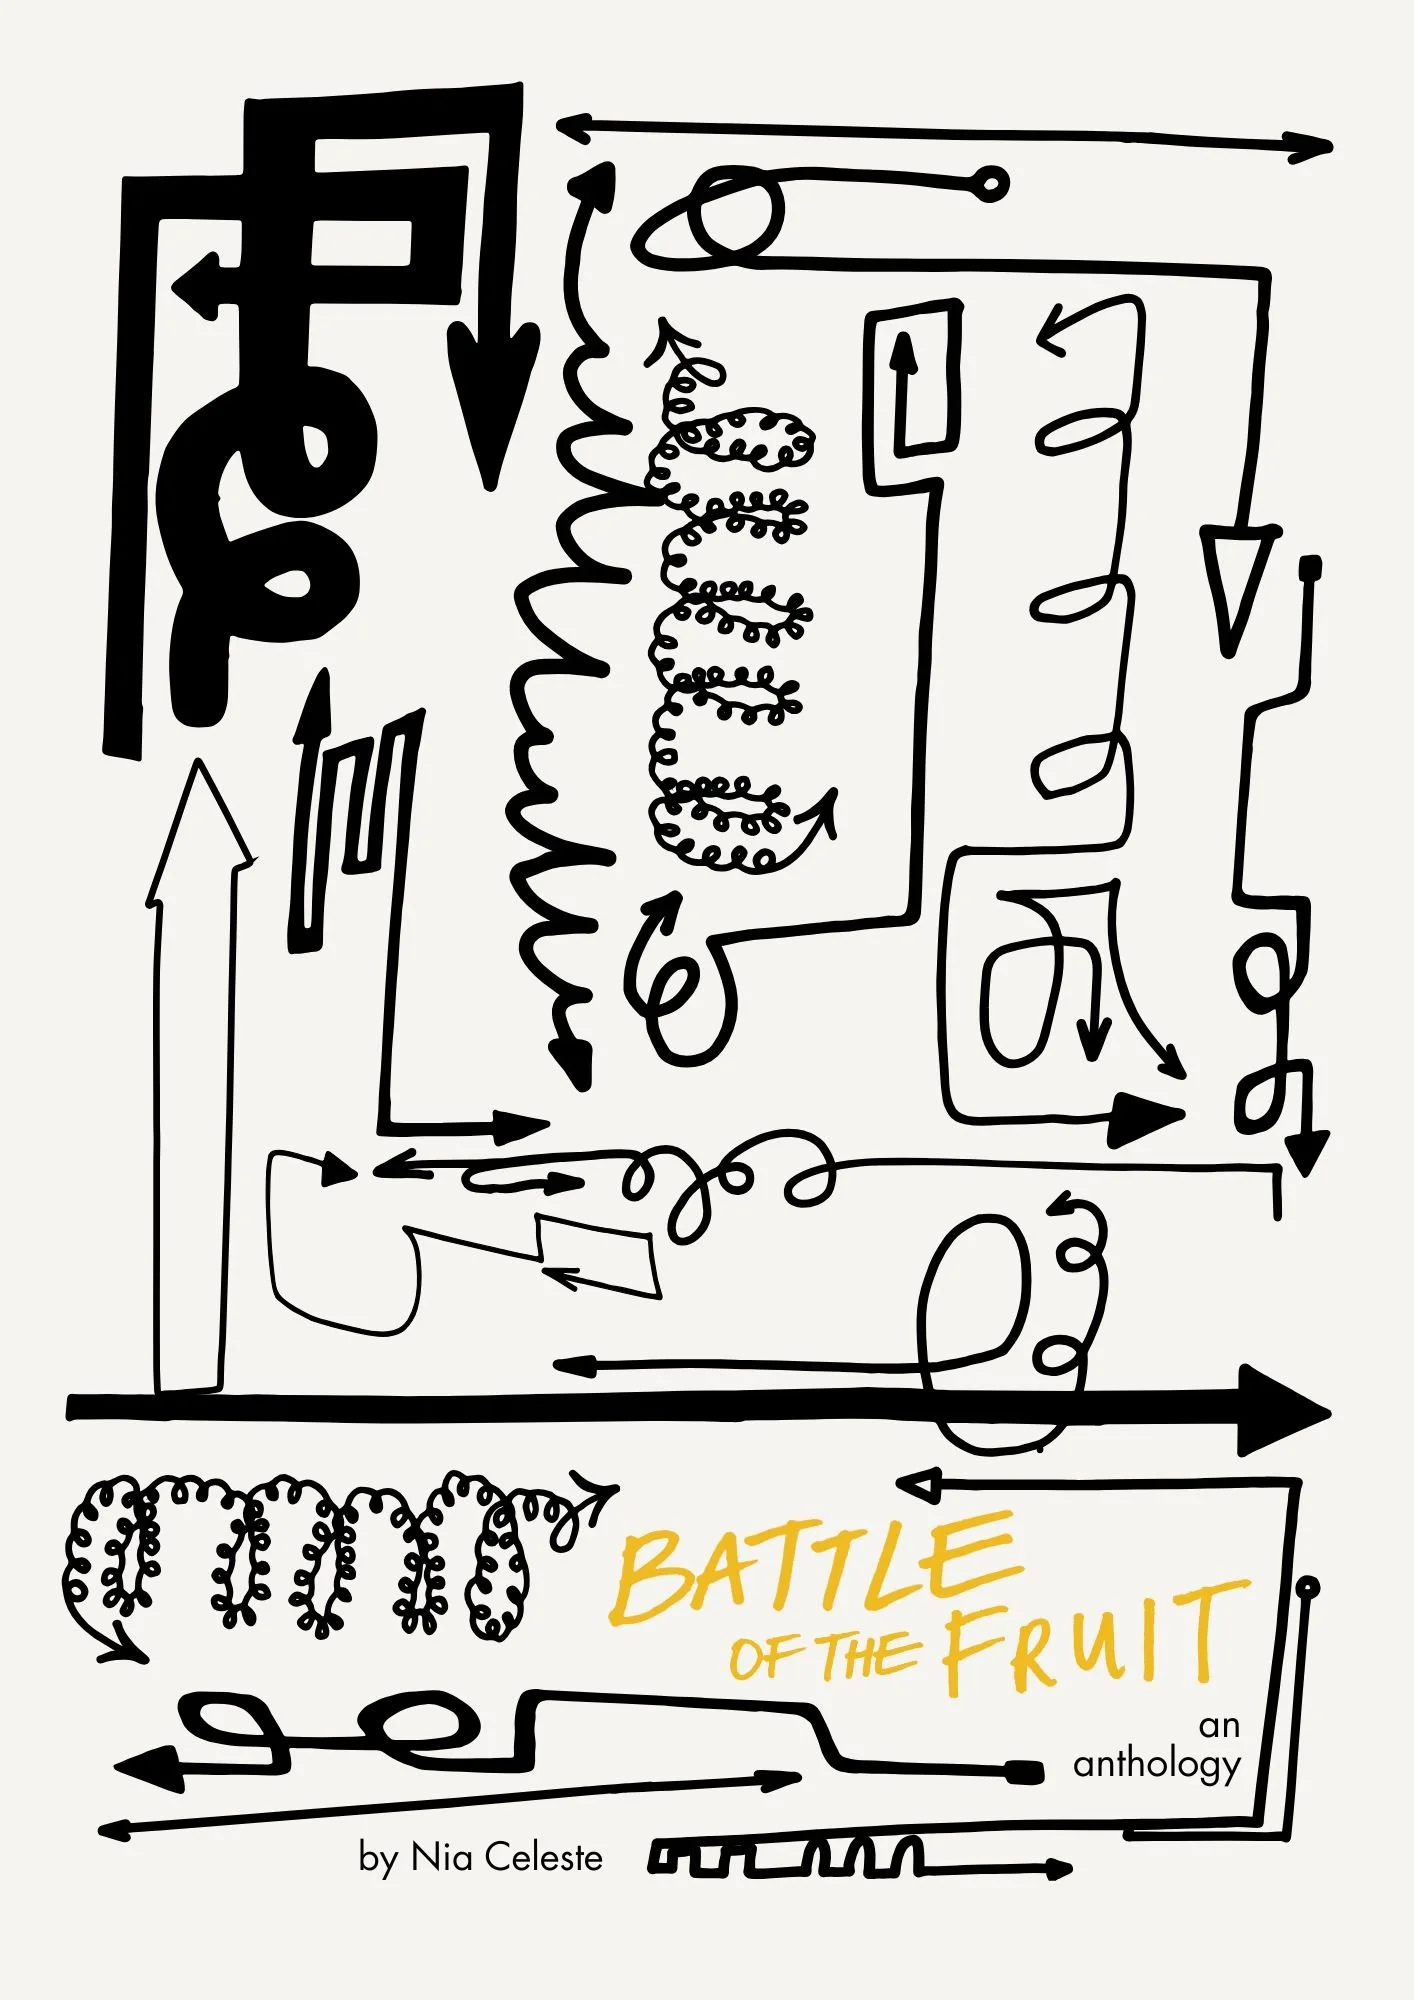 BATTLE
OF THE FRUIT
an
anthology
by Nia Celeste